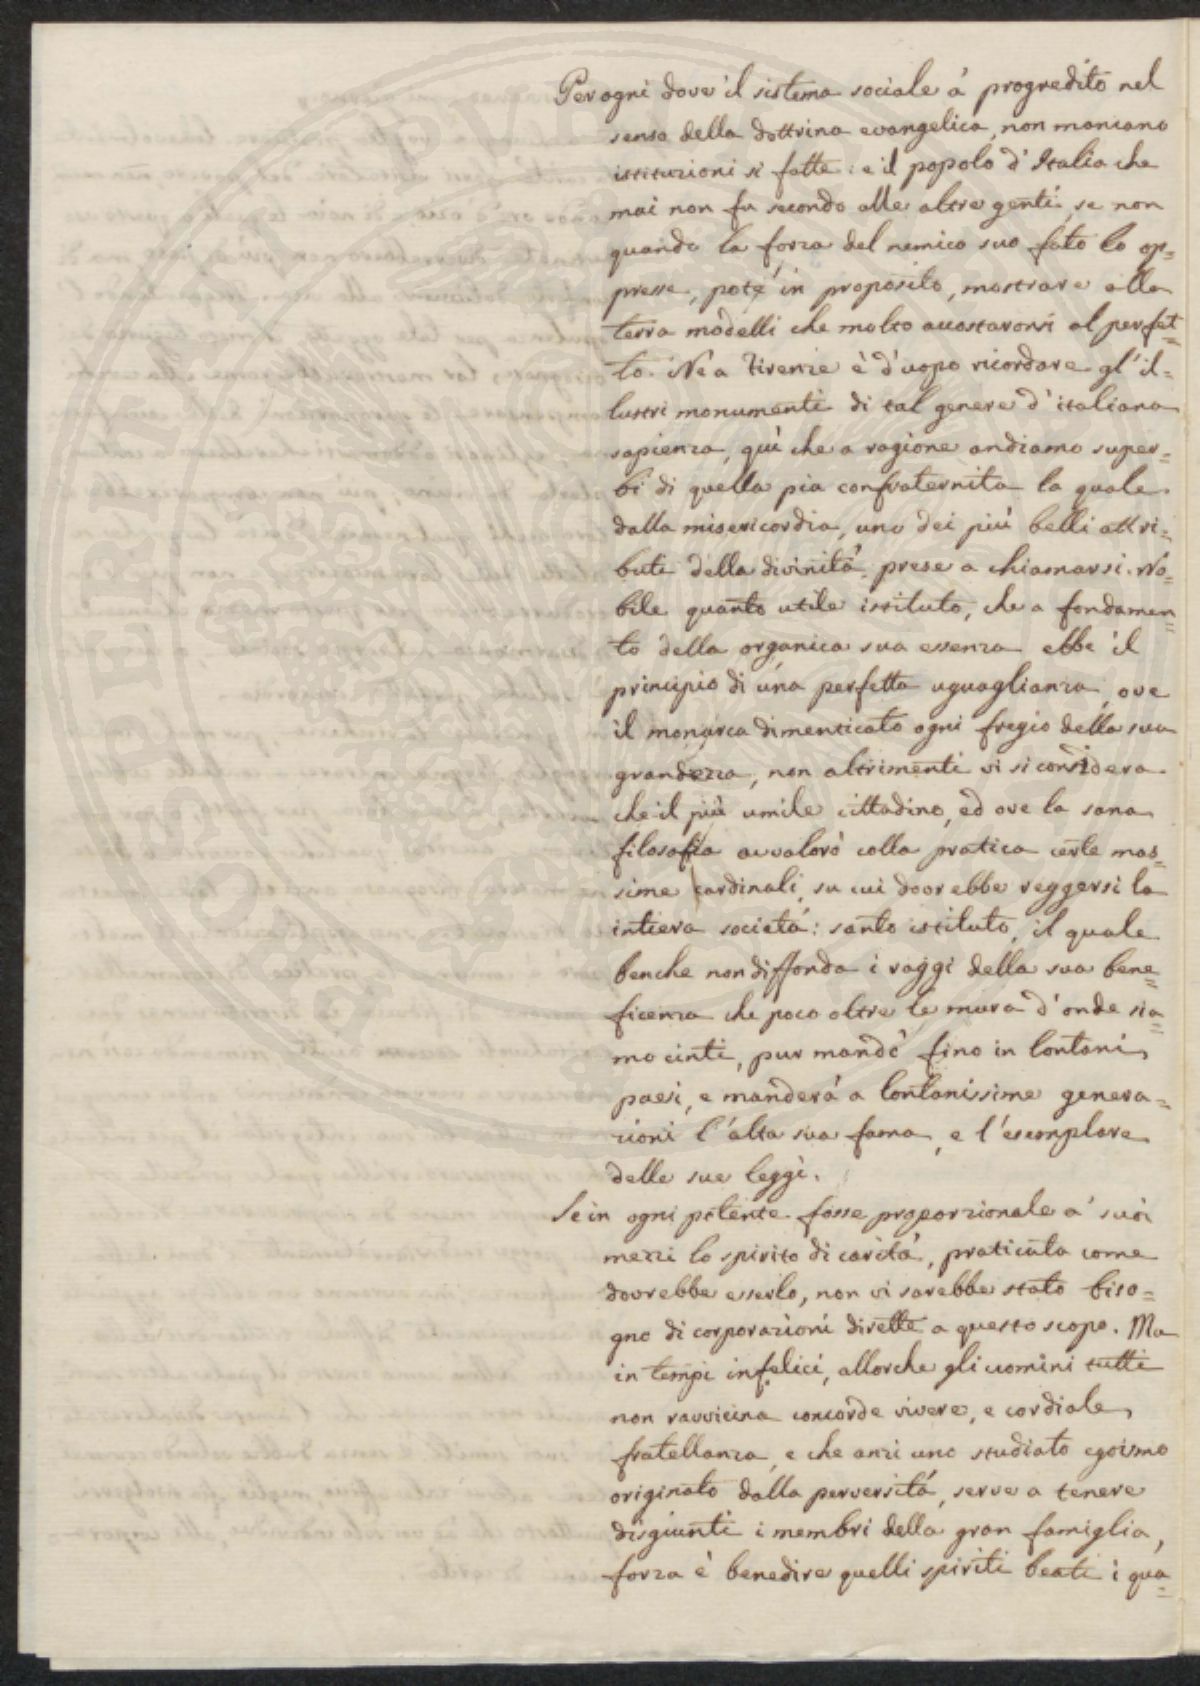 Per ogni dove il sistema sociale à progredito nel
senso della dottrina evangelica, non mancano
istituzioni si fatte: e il popolo d'Italia che
mai non fu secondo alle altre genti, se non
quando la forza del nemico suo fato lo op=
presse, poté in proposito, mostrare alla
terra modelli che molto accostaronsi al perfet=
to. Ne a Firenze è d'uopo ricordare gl'il=
lustri monumenti di tal genere d'italiana
sapienza, quì che a ragione andiamo super=
bi di quella pia confraternita la quale
dalla misericordia, uno dei più belli attri=
buti della divinità prese a chiamarsi. No=
bile quanto utile istituto, che a fondamen=
to della organica sua essenza ebbe il
principio di una perfetta uguaglianza, ove
il monarca dimenticato ogni fregio della sua
grandezza, non altrimenti vi si considera
che il più umile cittadino, ed ove la sana
filosofia avvalorò colla pratica certe mas=
sime cardinali, su cui dovrebbe reggersi la
intiera società: santo istituto, il quale
benche non diffonda i raggi della sua bene=
ficenza che poco oltre le mura d'onde sia=
mo cinti, pur mandò fino in lontani
paesi, e manderà a lontanissime genera=
zioni l'alta sua fama, e l'esemplare
delle sue leggi.
Se in ogni potente fosse proporzionale a' suoi
mezzi lo spirito di carità, praticata come
dovrebbe esserlo, non vi sarebbe stato biso=
gno di corporazioni dirette a questo scopo. Ma
in tempi infelici, allorche gli uomini tutti
non ravvicina concorde vivere, e cordiale
fratellanza, e che anzi uno studiato egoismo
originato dalla perversità, serve a tenere
disgiunti i membri della gran famiglia,
forza è benedire quelli spiriti beati i qua=